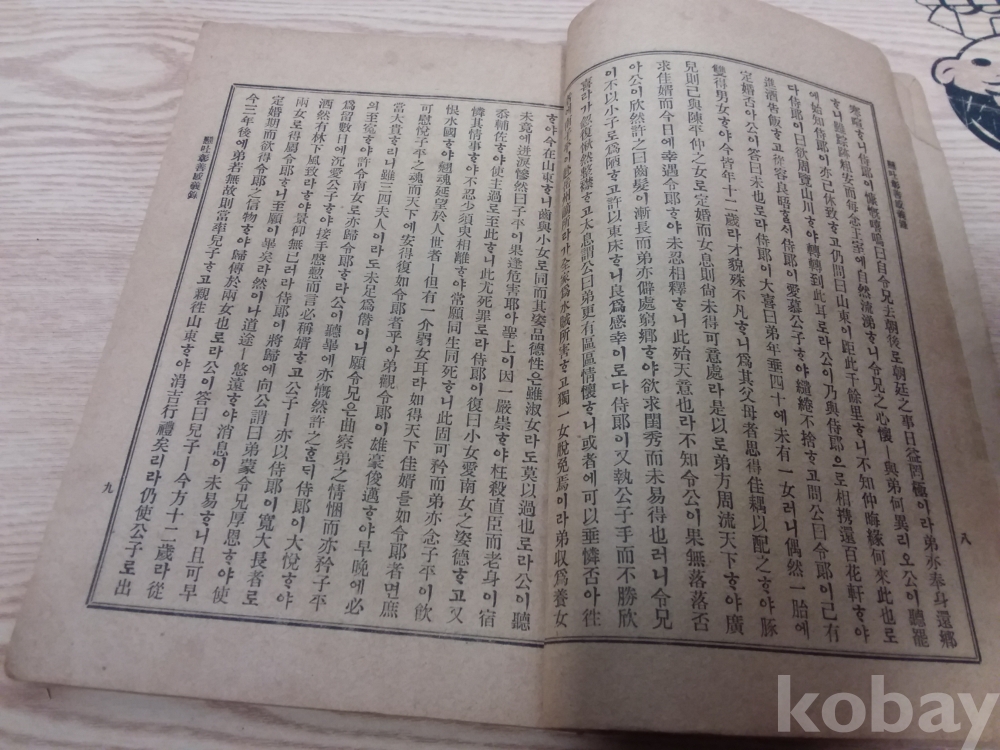 懸吐彰善感義錄
寒暄ᄒᆞ니侍郞이慷慨噫嗚曰自令兄去朝後로朝廷之事日益罔極이라弟亦奉身還鄕
ᄒᆞ니雖踪跡粗安而每念王室에自然流涕ᄒᆞ니令兄之心懷ㅣ與弟何異리오公이聽罷
에始知侍郞이亦已休致ᄒᆞ고仍問曰山東이距此千餘里ᄒᆞ니不知仲晦緣何來此也로
다侍郞이曰欲周覽山川ᄒᆞ야轉轉到此耳로라公이乃與侍郞으로相携還百花軒ᄒᆞ야
進酒告飯ᄒᆞ고從容良晤ᄒᆞᆯᄉᆡ侍郞이愛慕公子ᄒᆞ야繾綣不捨ᄒᆞ고問公曰令郞이已有
定婚否아公이答曰未也로라侍郞이大喜曰弟年垂四十에未有一女러니偶然一胎에
雙得男女ᄒᆞ야今皆年十二歲라才貌殊不凡ᄒᆞ니爲其父母者思得佳耦以配之ᄒᆞ야豚
兒則已與陳平仲之女로定婚而女息則尙未得可意處라是以로弟方周流天下ᄒᆞ야廣
求佳婿而今日에幸遇令郞ᄒᆞ야未忍相釋ᄒᆞ니此殆天意也라不知令公이果無落落否
아公이欣然許之曰齒髮이漸長而弟亦僻處窮鄕ᄒᆞ야欲求閨秀而未易得也러니令兄
이不以小子로爲陋ᄒᆞ고許以東床ᄒᆞ니良爲感幸이로다侍郞이又執公子手而不勝欣
喜라가忽復愀然整襟ᄒᆞ고太息謂公曰弟更有區區情懷ᄒᆞ니或者에可以垂憐否아往
라가全家爲水賊所害ᄒᆞ고獨一女脫免焉이라弟收爲養女
八
ᄒᆞ야今在山東ᄒᆞ니齒與小女로同而其姿品德性은雖淑女라도莫以過也로라公이聽
未竟에迸淚慘然曰子平이果逢危害耶아聖上이因一嚴崇ᄒᆞ야枉殺直臣而老身이宿
忝輔佐ᄒᆞ야使主過로至此ᄒᆞ니此尤死罪로라侍郞이復曰小女愛南女之姿德ᄒᆞ고又
憐其情事ᄒᆞ야不忍少須臾相離ᄒᆞ야常願同生同死ᄒᆞ니此固可矜而弟亦念子平이飮
恨水國ᄒᆞ야翹魂延望於人世者ㅣ但有一介弱女耳라如得天下佳婿를如令郞者면庶
可慰悅子平之魂而天下에安得復如令郞者乎아弟觀令郞이雄豪俊邁ᄒᆞ야早晩에必
當大貴ᄒᆞ리니雖三四夫人이라도未足爲僭이니願令兄은曲察弟之情悃而亦矜子平
의至冤ᄒᆞ야許令南女로亦歸令郞ᄒᆞ라公이聽畢에亦慨然許之ᄒᆞᆫᄃᆡ侍郞이大悅ᄒᆞ야
爲留數日에沉愛公子ᄒᆞ야接手慇懃而言必稱婿ᄒᆞ고公子ㅣ亦以侍郞이寬大長者로
洒然有林下風致라ᄒᆞ야景仰無已러라侍郞이將歸에向公謂曰弟蒙令兄厚恩ᄒᆞ야使
兩女로得屬令郞ᄒᆞ니至願이畢矣라然이나道途ㅣ悠遠ᄒᆞ야消息이未易ᄒᆞ니且可早
定婚期而欲得令郞之信物ᄒᆞ야歸傳於兩女也로라公이答曰兒子ㅣ今方十二歲라從
今三年後에弟若無故則當率兒子ᄒᆞ고親往山東ᄒᆞ야涓吉行禮矣리라仍使公子로出
懸吐彰善感義錄
九
kobay